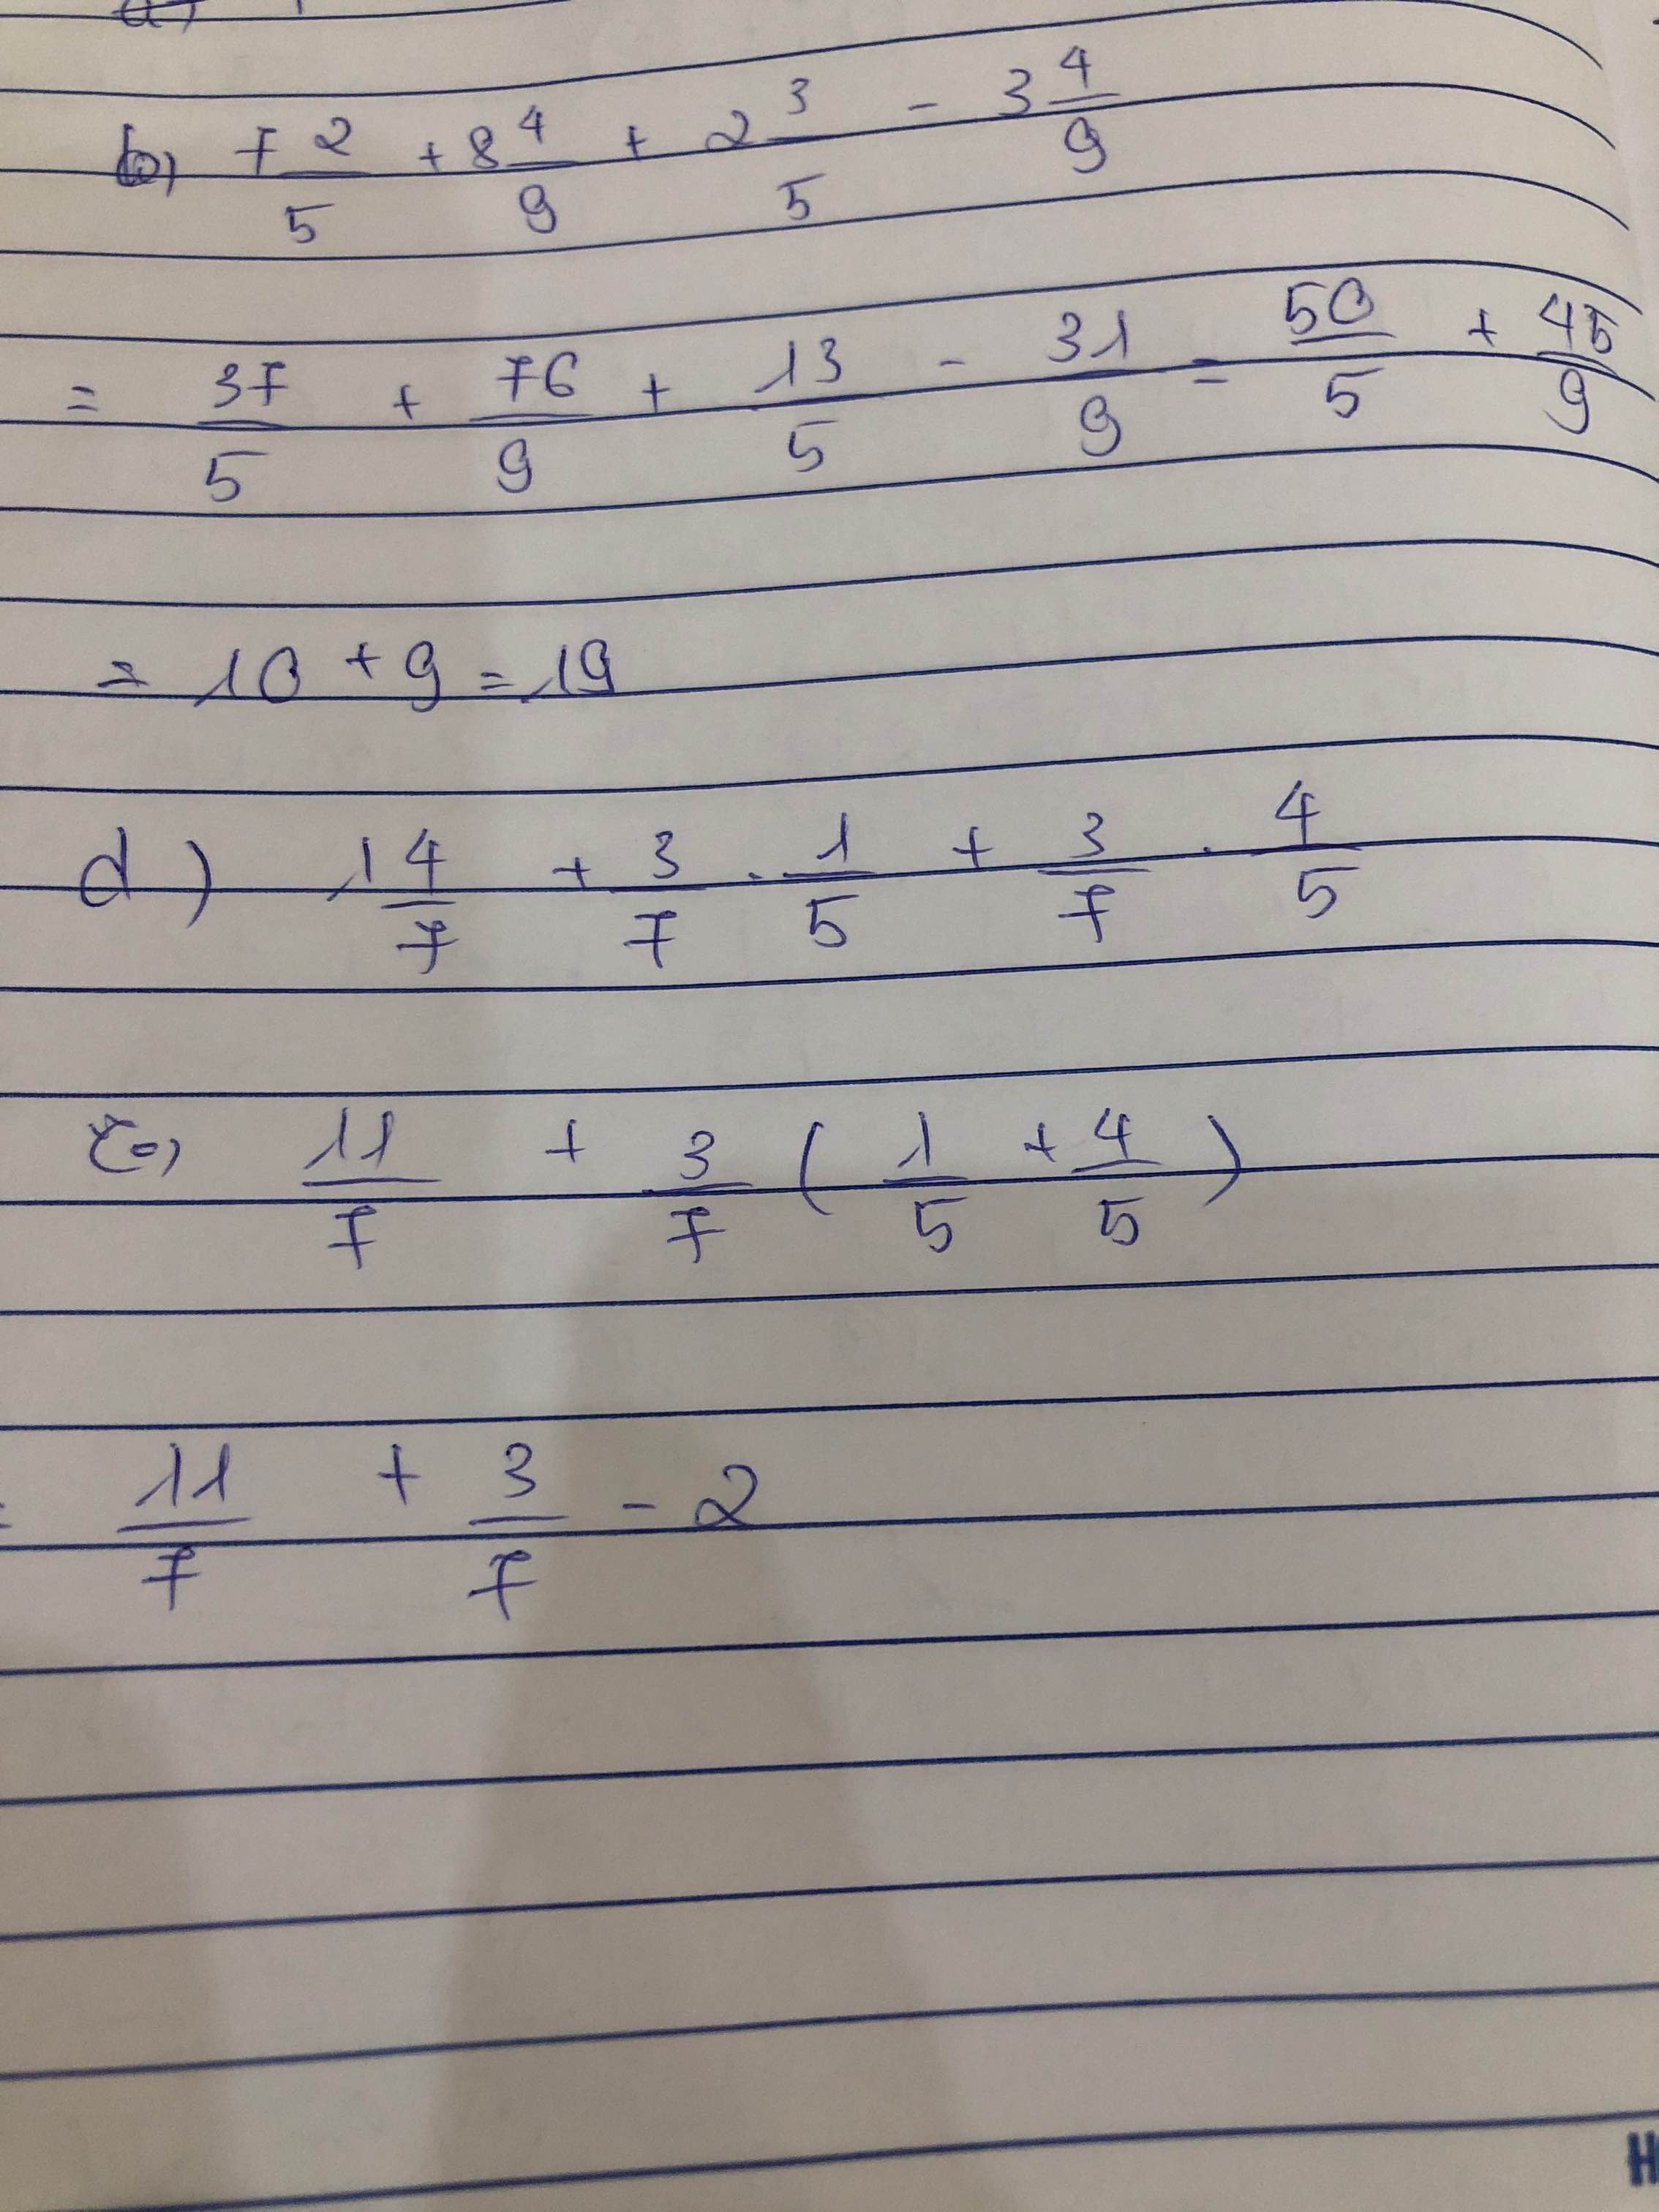 b) 7 2/5 + 8 4/9 + 2 3/5 - 3 4/9
= 37/5 + 76/9 + 13/5 - 31/9 = 50/5 + 45/9
= 10 + 9 = 19
d) 1 4/7 + 3/7 . 1/5 + 3/7 . 4/5
11/7 + 3/7 ( 1/5 + 4/5 )
= 11/7 + 3/7 - 2
H